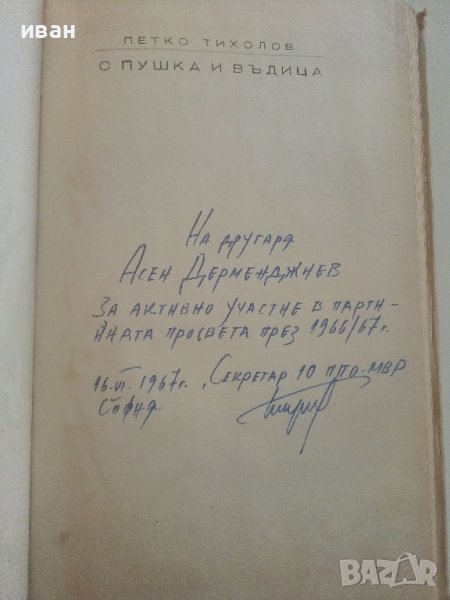 иван
ПЕТКО ТИХОЛОВ
С ПУШКА И ВЪДИЦА
На другаря
Асен Дерменджиев
За активно участие в парти-
йната просвета през 1966/67 г.
16.VI.1967 г. Секретар 10 ппо-МВР
София
BAZAR